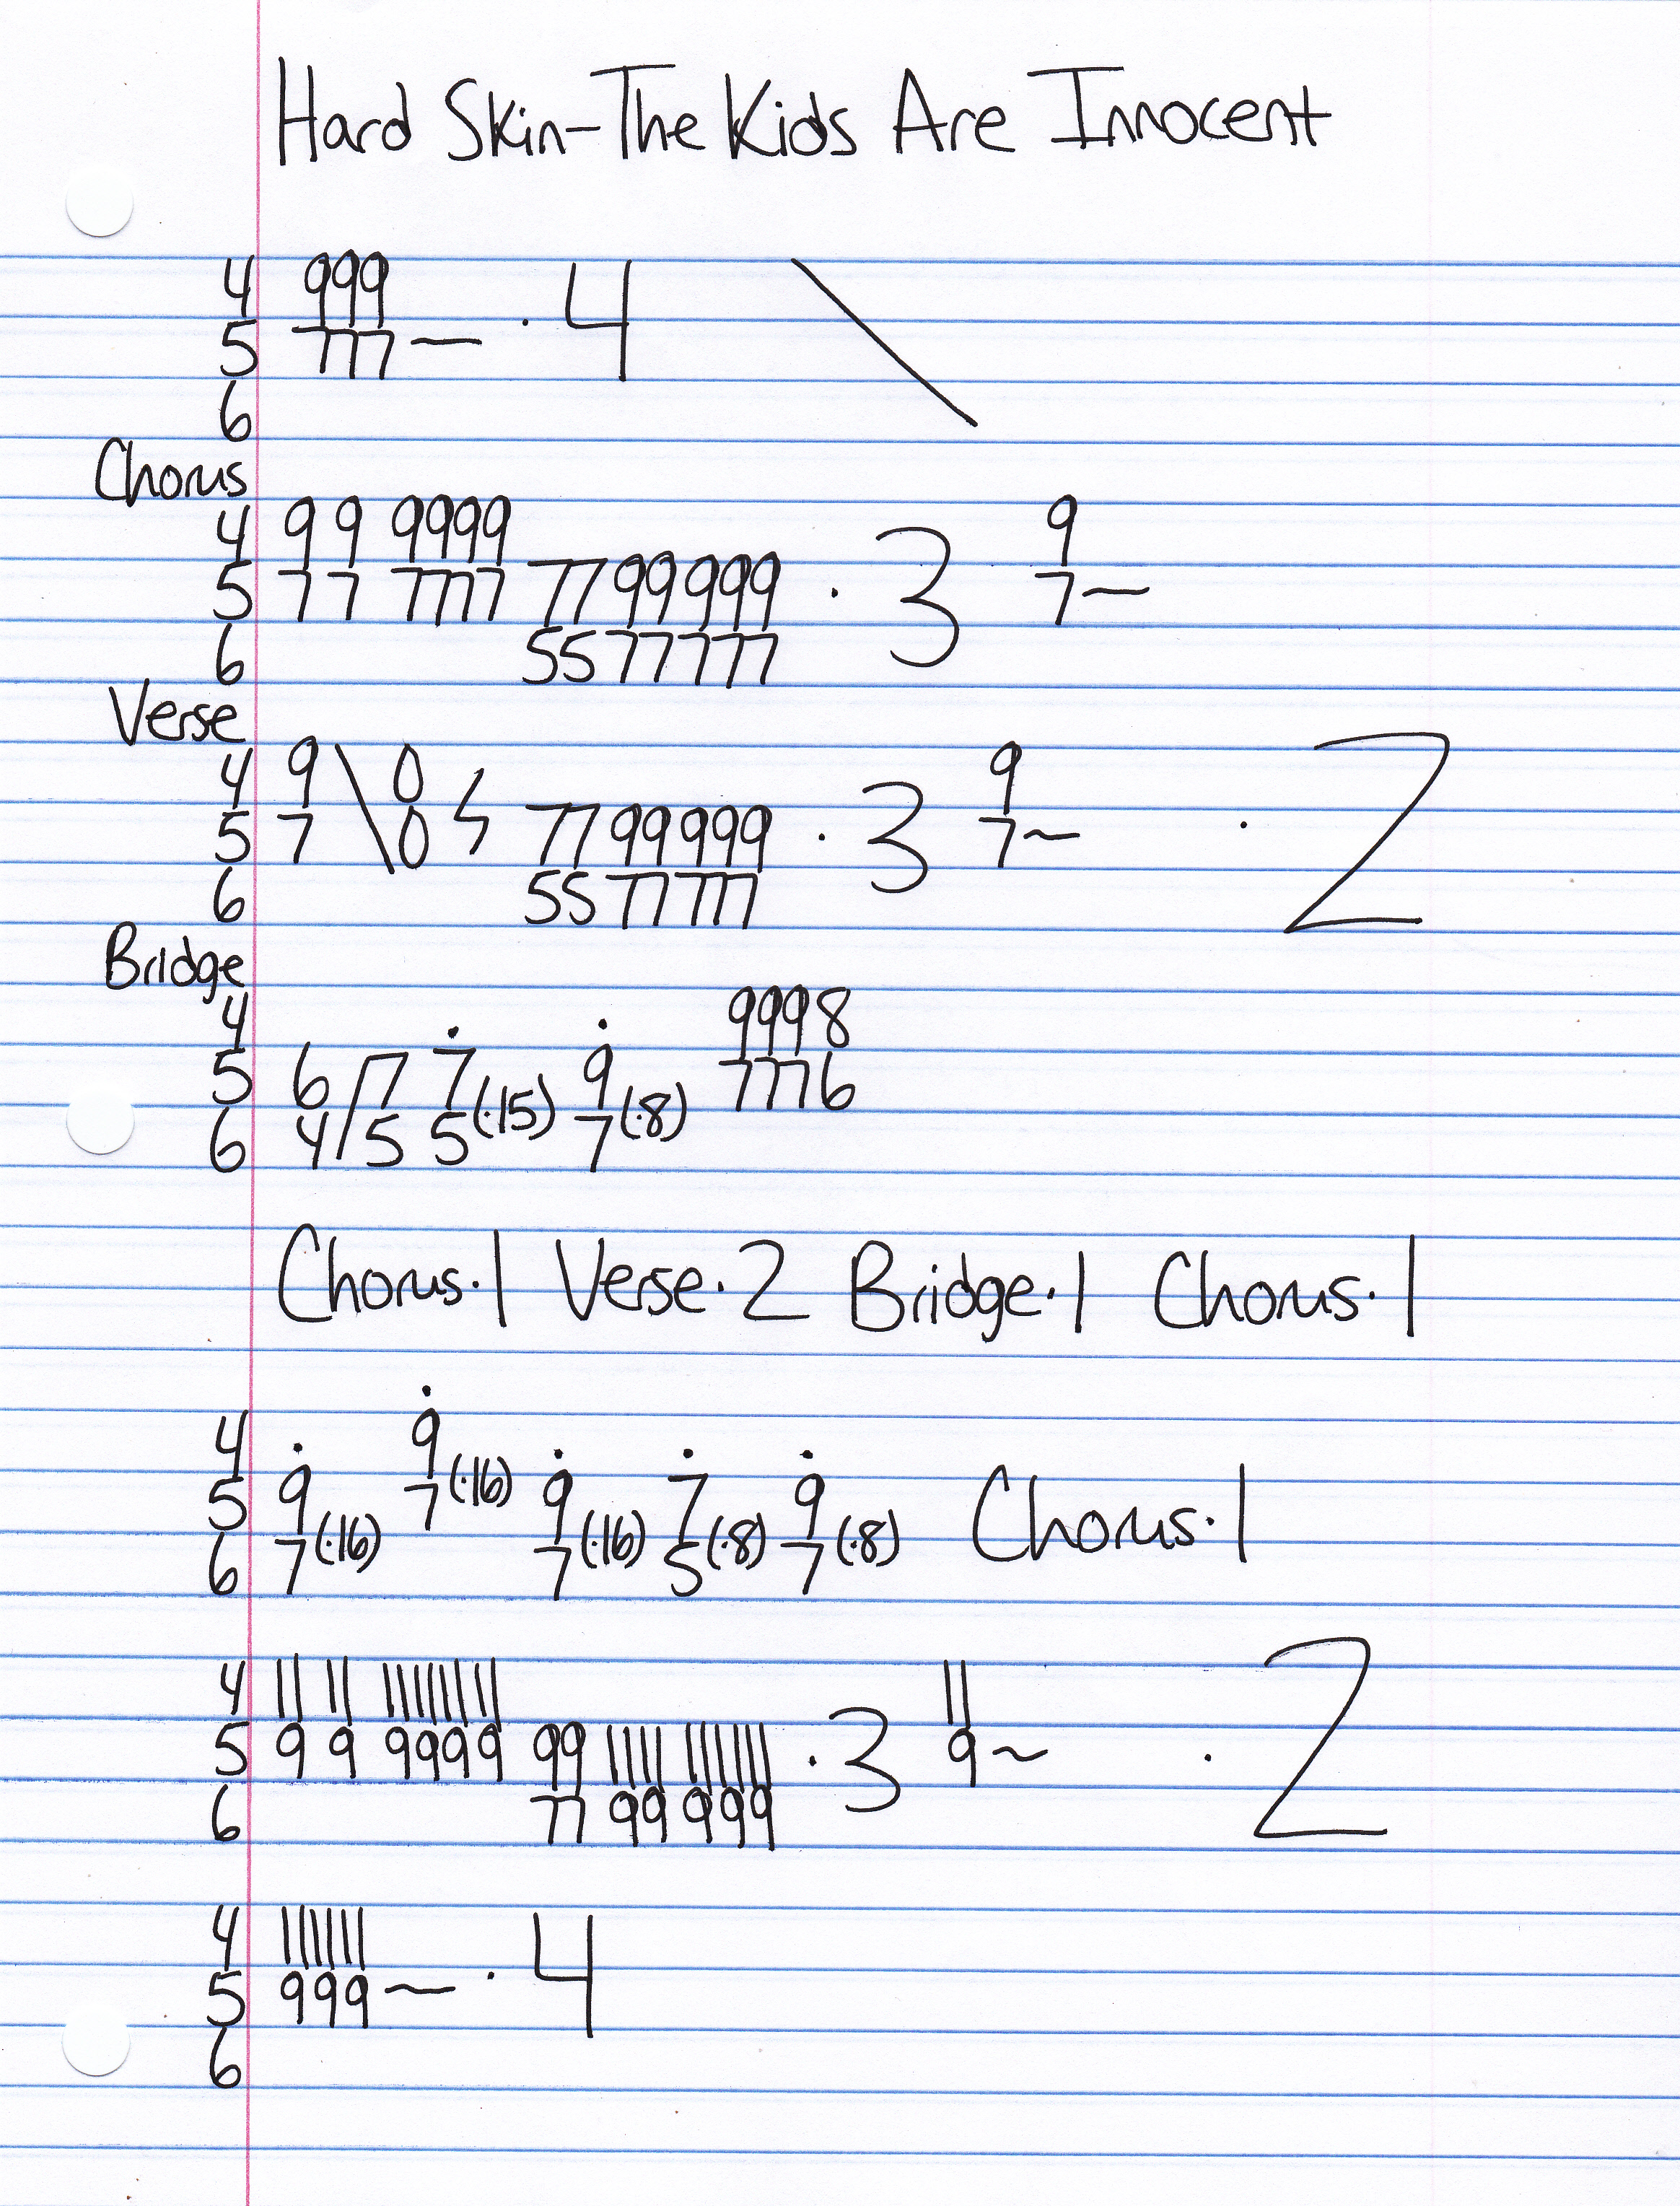 Hard Skin-The Kids Are Innocent
4 999
5 777— · 4 \
6
Chorus
4 9 9 9999 9
5 7 7 7777 77 99 999 · 3 7—
6 55 77 777
Verse
4 9 \ 0 9
5 7 \ 0 ϟ 77 99 999 · 3 7~ · 2
6 55 77 777
Bridge
4 . . 9998
5 6/7 7(·15) 9(·8) 7776
6 4/5 5 7
Chorus·1 Verse·2 Bridge·1 Chorus·1
4 . 9(·16) . . .
5 9(·16) 7 9(·16) 7(·8) 9(·8) Chorus·1
6 7 7 5 7
4 11 11 11111111 11
5 9 9 9999 99 1111 111111 · 3 9~ · 2
6 77 99 999
4 111111
5 999~ · 4
6